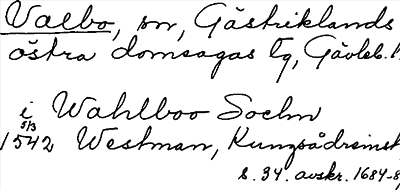 Valbo, sn, Gästriklands
östra domsagas tg, Gävleb. l.
i Wahlboo Sochn
5/3
1542 Westman, Kungsådreinst
s. 34. avskr. 1684-8